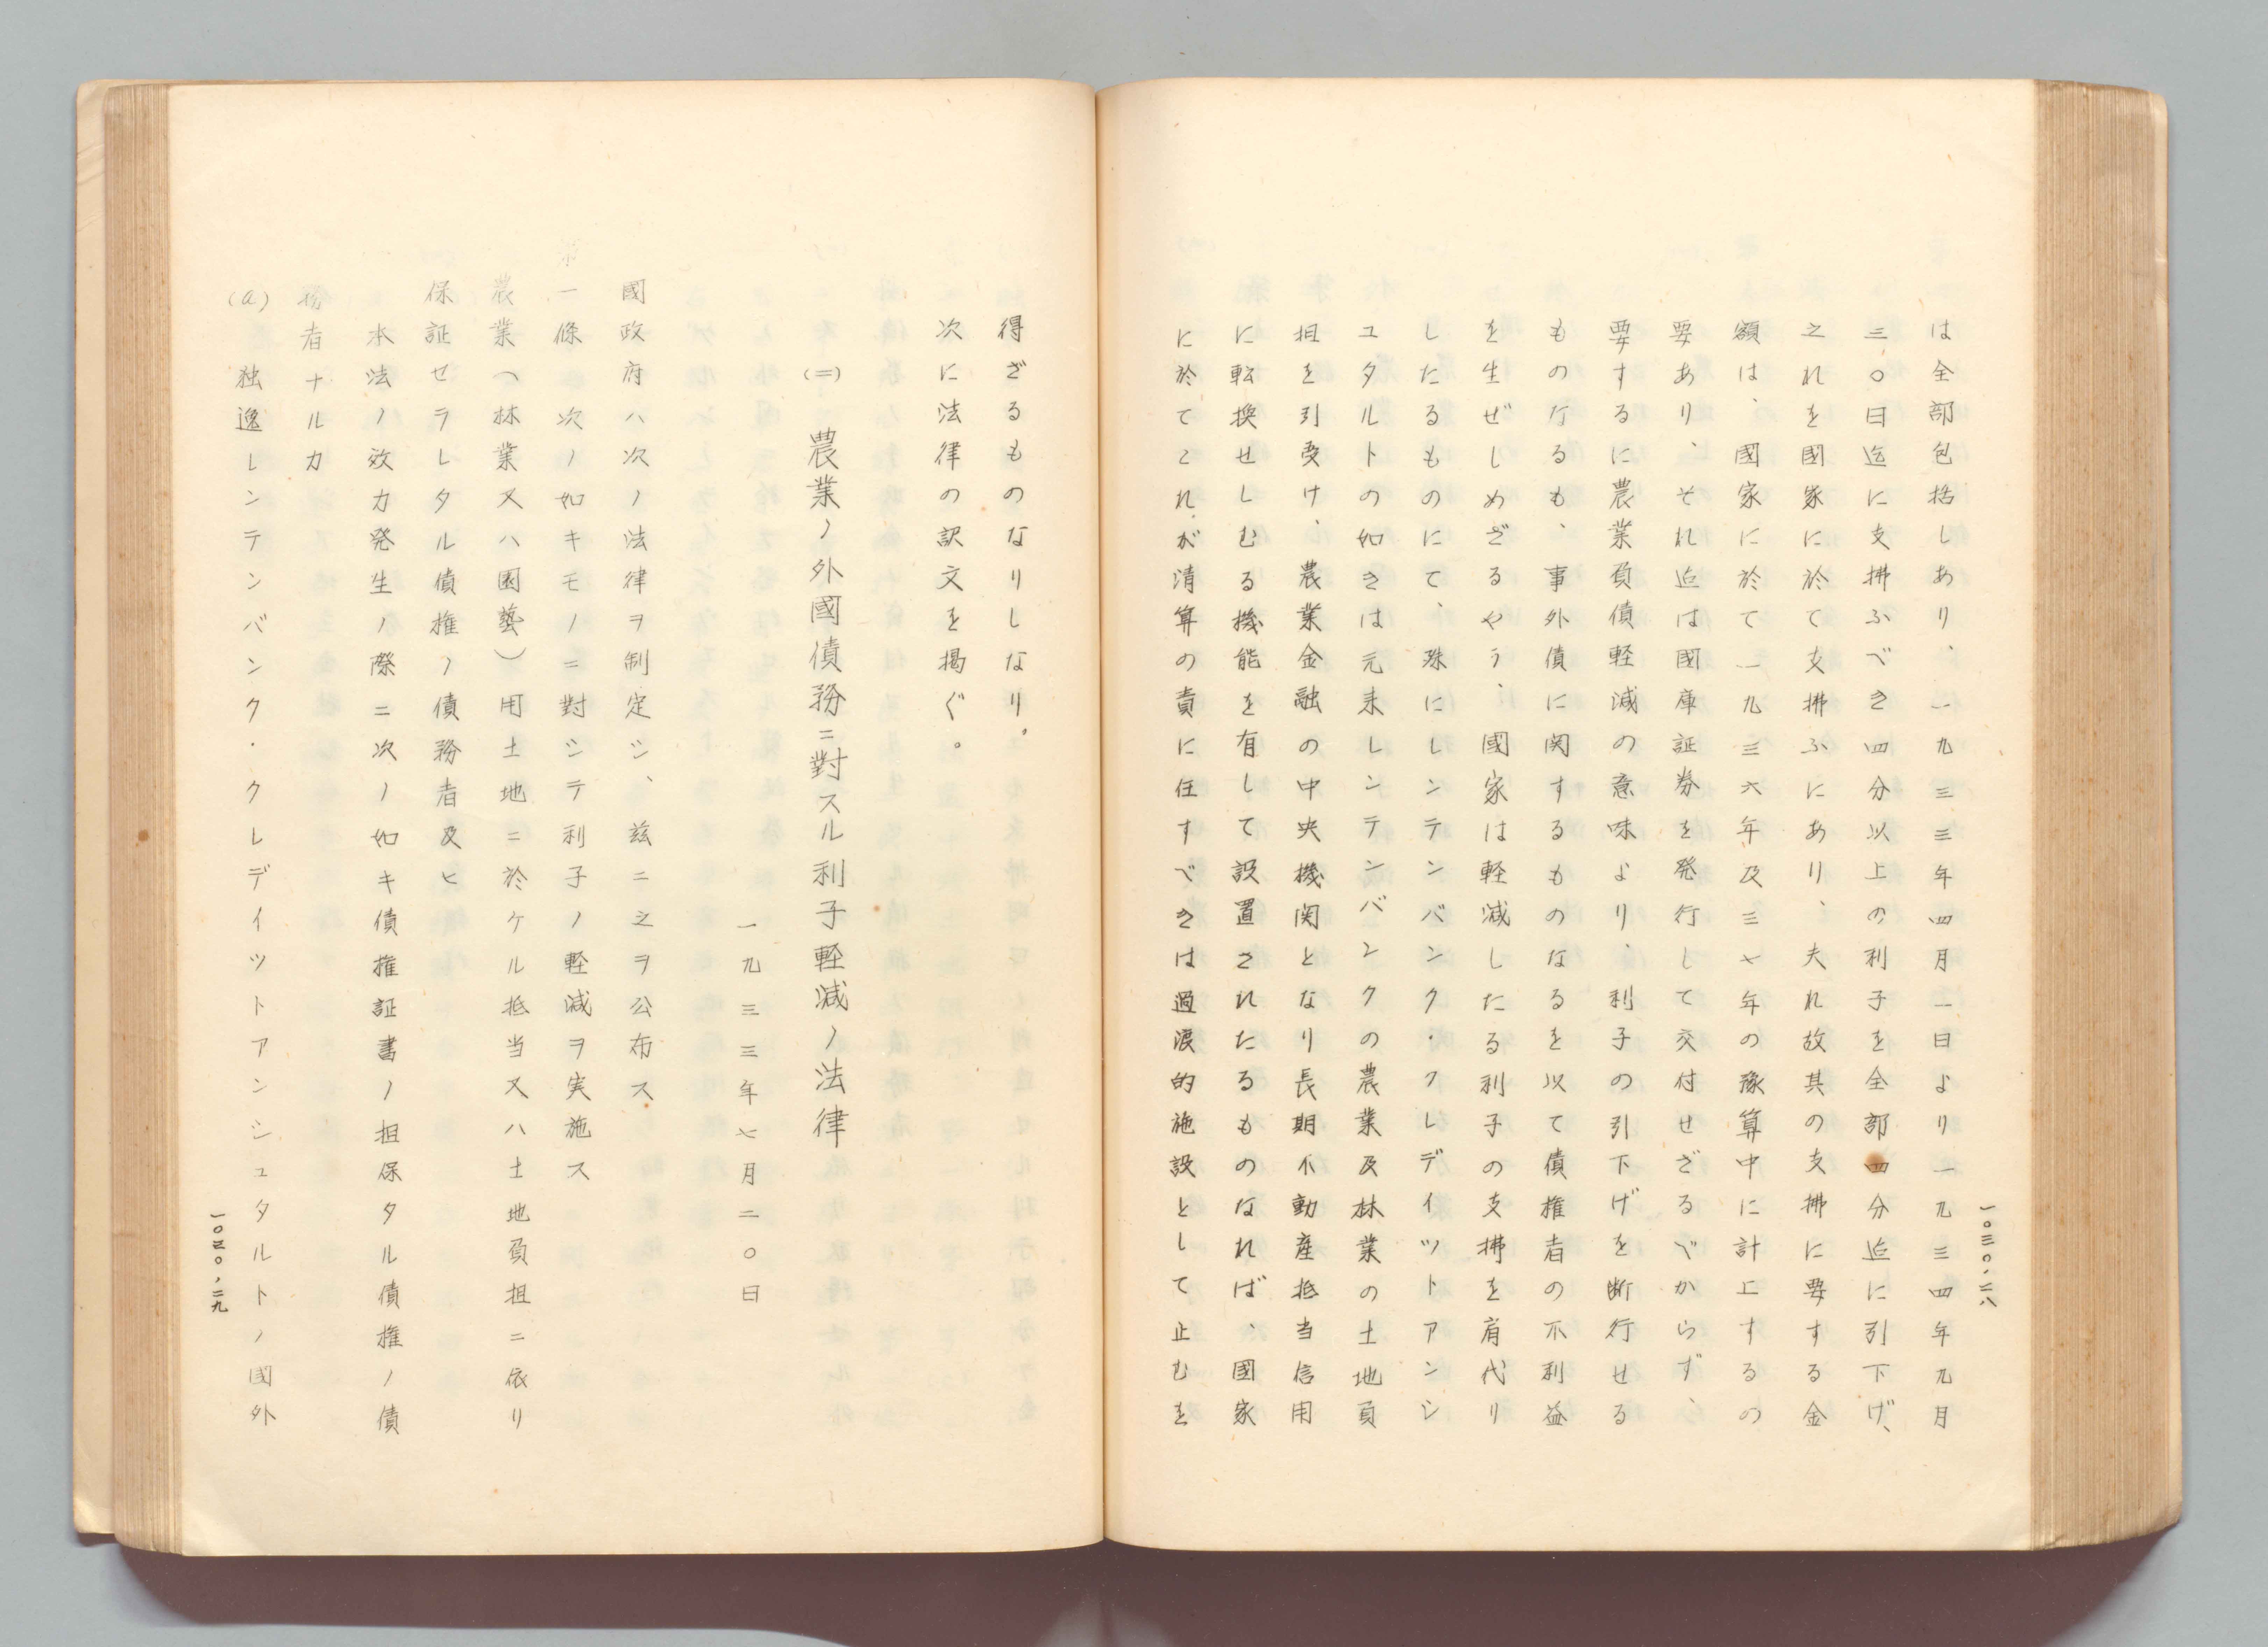 一〇三〇、二八
は全部包括しあり、一九三三年四月一日より一九三四年九月
三〇日迄に支拂ふべき四分以上の利子を全部四分迄に引下げ、
之れを國家に於て支拂ふにあり、夫れ故其の支拂に要する金
額は、國家に於て一九三六年及三七年の豫算中に計上するの
要あり、それ迄は國庫証券を発行して交付せざるべからず、
要するに農業負債軽減の意味より、利子の引下げを断行せる
ものなるも、事外債に関するものなるを以て債権者の不利益
を生ぜしめざるやう、國家は軽減したる利子の支拂を肩代り
したるものにて、殊にレンテンバンク・クレデイツトアンシ
ユタルトの如きは元来レンテンバンクの農業及林業の土地負
担を引受け、農業金融の中央機関となり長期不動産抵当信用
に転換せしむる機能を有して設置されたるものなれば、國家
に於てこれが清算の責に任すべきは過渡的施設として止むを
得ざるものなりしなり。
次に法律の訳文を掲ぐ。
(二) 農業ノ外國債務ニ對スル利子軽減ノ法律
一九三三年七月二〇日
國政府ハ次ノ法律ヲ制定シ、茲ニ之ヲ公布ス
第一條 次ノ如キモノニ對シテ利子ノ軽減ヲ実施ス
農業(林業又ハ園藝)用土地ニ於ケル抵当又ハ土地負担ニ依リ
保証セラレタル債権ノ債務者及ヒ
本法ノ效力発生ノ際ニ次ノ如キ債権証書ノ担保タル債権ノ債
務者ナルカ
(a) 独逸レンテンバンク・クレデイツトアンシユタルトノ國外
一〇三〇、二九